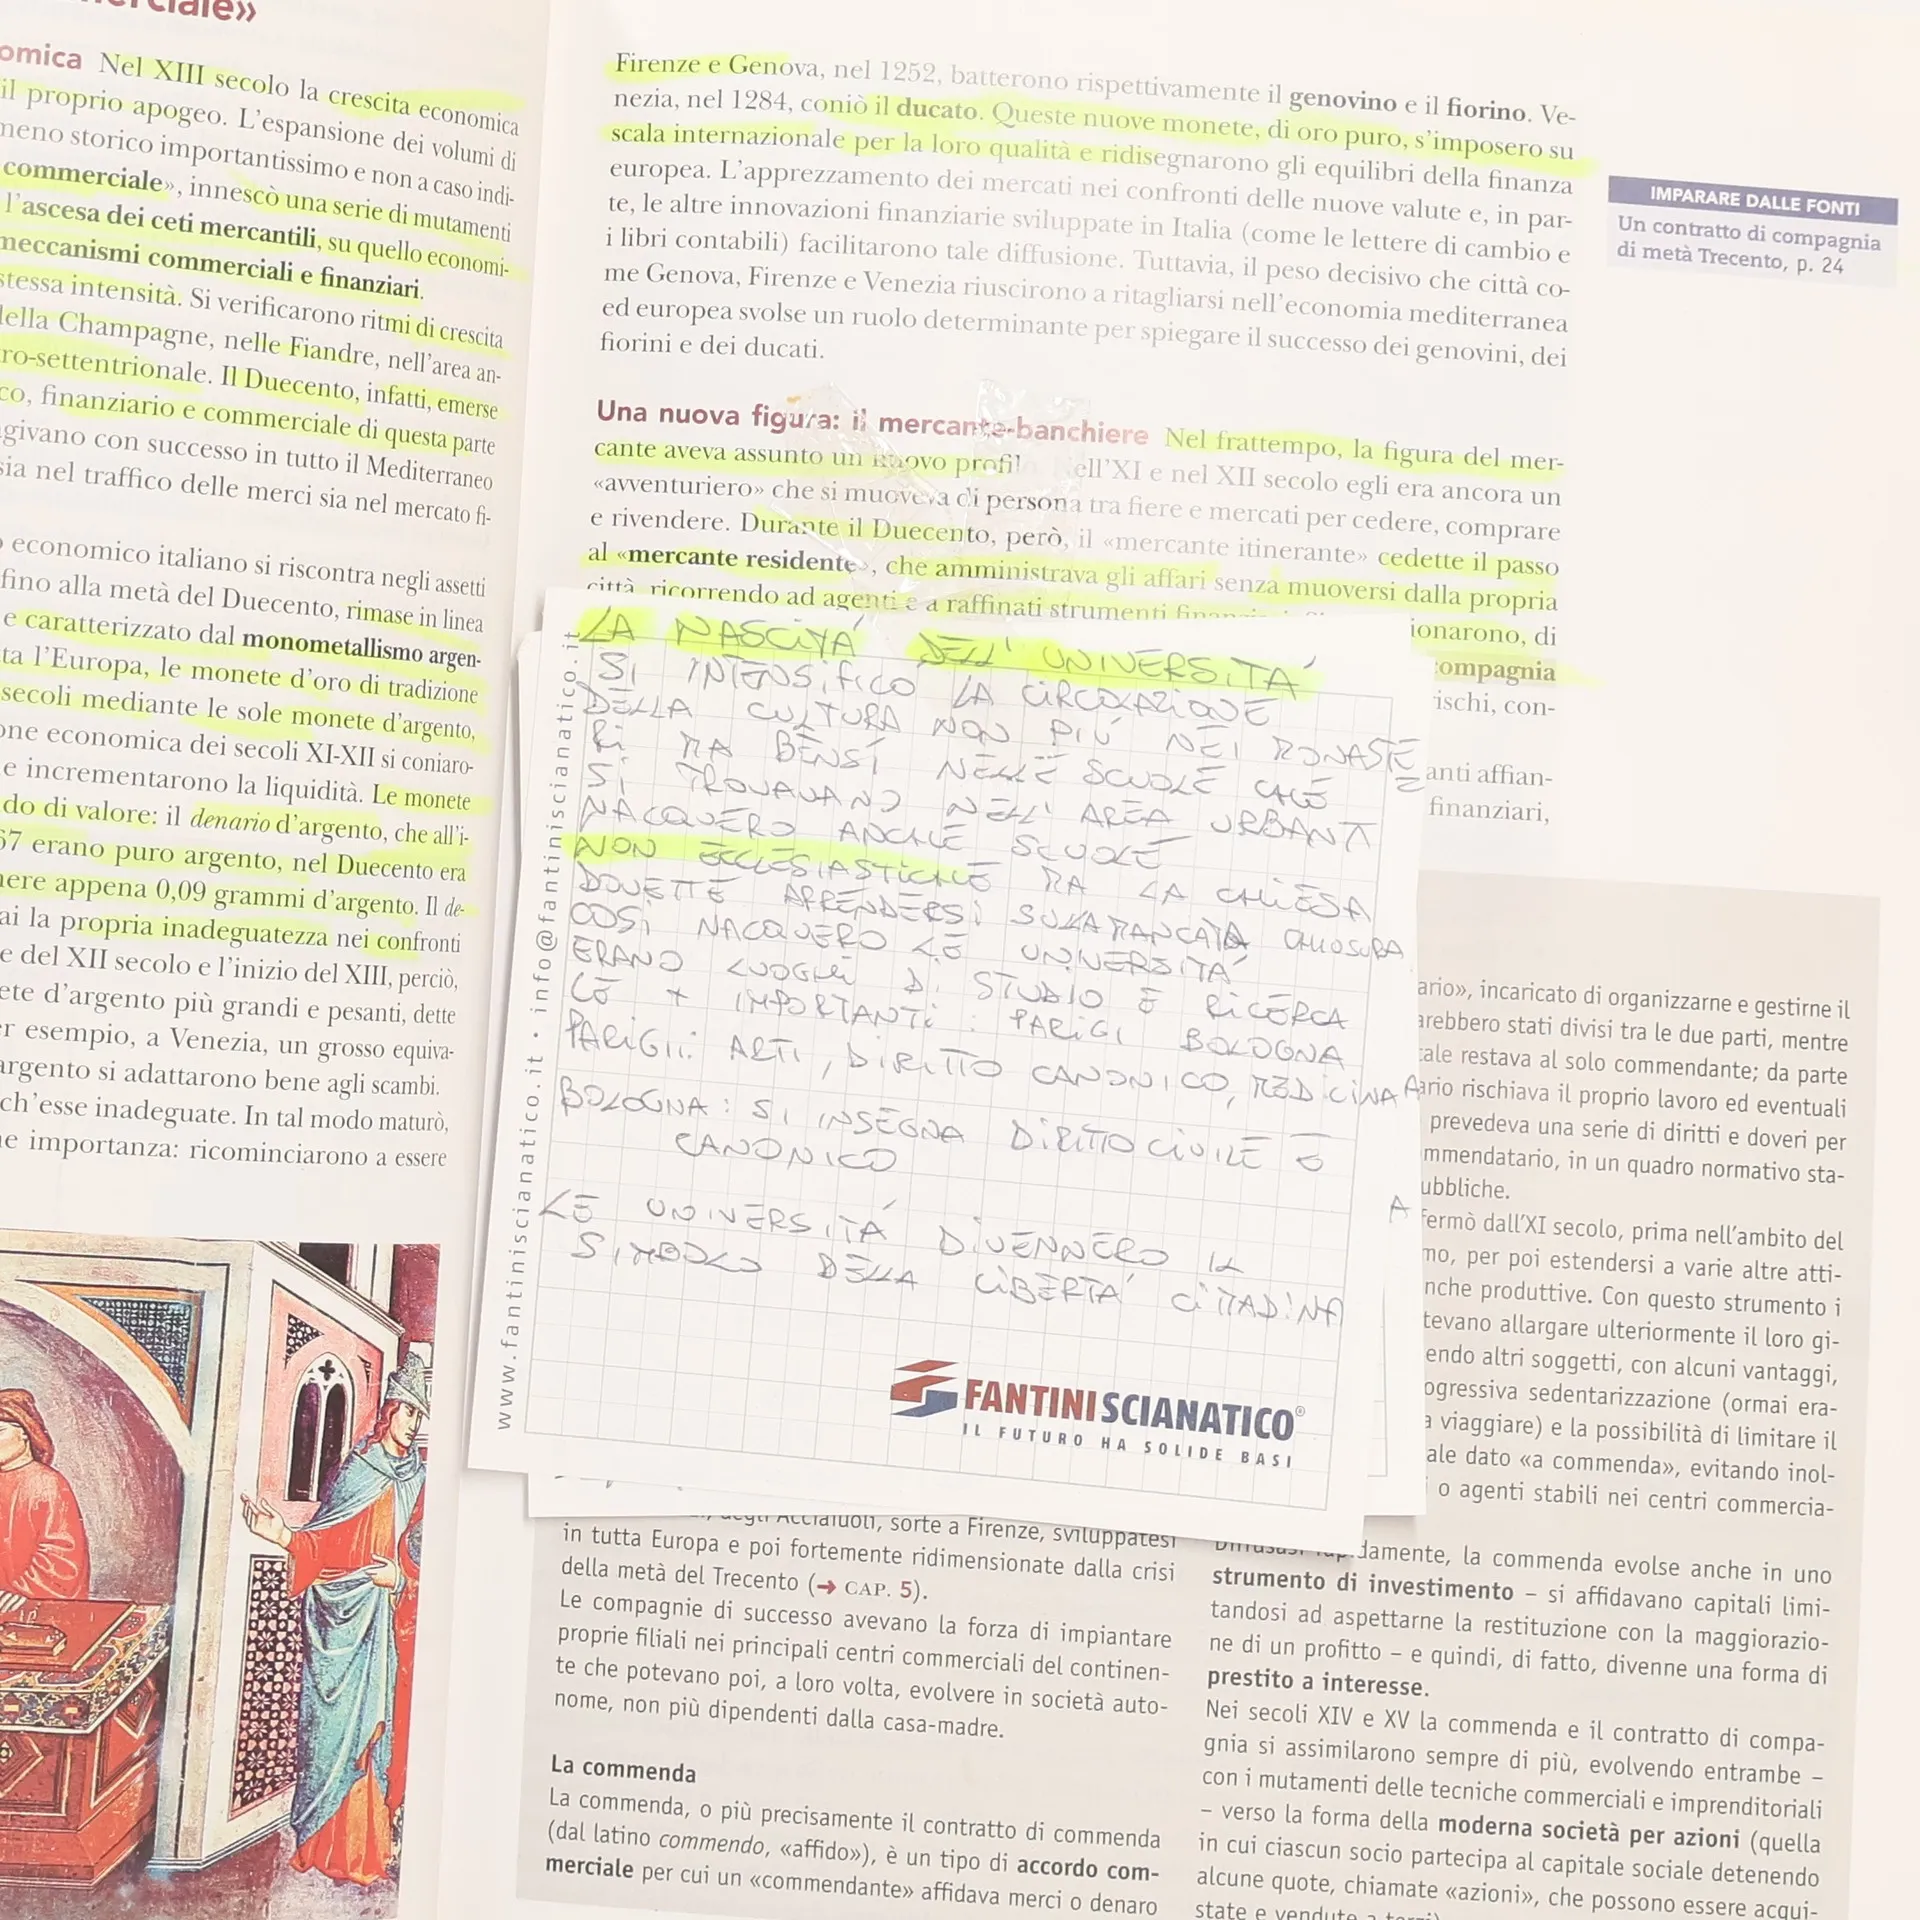 erciale»
omica Nel XIII secolo la crescita economica
il proprio apogeo. L'espansione dei volumi di
meno storico importantissimo e non a caso indi-
commerciale», innescò una serie di mutamenti
l'ascesa dei ceti mercantili, su quello economi-
meccanismi commerciali e finanziari.
stessa intensità. Si verificarono ritmi di crescita
della Champagne, nelle Fiandre, nell'area an-
ro-settentrionale. Il Duecento, infatti, emerse
co, finanziario e commerciale di questa parte
givano con successo in tutto il Mediterraneo
sia nel traffico delle merci sia nel mercato fi-
economico italiano si riscontra negli assetti
fino alla metà del Duecento, rimase in linea
e caratterizzato dal monometallismo argen-
ta l'Europa, le monete d'oro di tradizione
secoli mediante le sole monete d'argento,
one economica dei secoli XI-XII si coniaro-
e incrementarono la liquidità. Le monete
do di valore: il denario d'argento, che all'i-
67 erano puro argento, nel Duecento era
nere appena 0,09 grammi d'argento. Il de-
ai la propria inadeguatezza nei confronti
e del XII secolo e l'inizio del XIII, perciò,
ete d'argento più grandi e pesanti, dette
er esempio, a Venezia, un grosso equiva-
argento si adattarono bene agli scambi.
ch'esse inadeguate. In tal modo maturò,
ne importanza: ricominciarono a essere
Firenze e Genova, nel 1252, batterono rispettivamente il genovino e il fiorino. Ve-
nezia, nel 1284, coniò il ducato. Queste nuove monete, di oro puro, s'imposero su
scala internazionale per la loro qualità e ridisegnarono gli equilibri della finanza
europea. L'apprezzamento dei mercati nei confronti delle nuove valute e, in par-
te, le altre innovazioni finanziarie sviluppate in Italia (come le lettere di cambio e
i libri contabili) facilitarono tale diffusione. Tuttavia, il peso decisivo che città co-
me Genova, Firenze e Venezia riuscirono a ritagliarsi nell'economia mediterranea
ed europea svolse un ruolo determinante per spiegare il successo dei genovini, dei
fiorini e dei ducati.
IMPARARE DALLE FONTI
Un contratto di compagnia
di metà Trecento, p. 24
Una nuova figura: il mercante-banchiere Nel frattempo, la figura del mer-
cante aveva assunto un nuovo profil ell'XI e nel XII secolo egli era ancora un
«avventuriero» che si muoveva di persona tra fiere e mercati per cedere, comprare
e rivendere. Durante il Duecento, però, il «mercante itinerante» cedette il passo
al «mercante residente», che amministrava gli affari senza muoversi dalla propria
città, ricorrendo ad agenti e a raffinati strumenti
ionarono, di
ompagnia
rischi, con-
anti affian-
finanziari,
LA NASCITÁ DELL'UNIVERSITÁ
SI INTENSIFICÓ LA CIRCOLAZIONE
DELLA CULTURA NON PIÚ NEI MONASTE
RI MA BENSÍ NELLE SCUOLE CHE
SI TROVAVANO NELL'AREA URBANA
NACQUERO ANCHE SCUOLE
NON ECCLESIASTICHE MA LA CHIESA
DOVETTE ARRENDERSI SULLA MANCATA CHIUSURA
COSÍ NACQUERO LE UNIVERSITÁ
ERANO LUOGHI DI STUDIO E RICERCA
LE + IMPORTANTI: PARIGI BOLOGNA
PARIGI: ARTI, DIRITTO CANONICO, MEDICINA
BOLOGNA: SI INSEGNA DIRITTO CIVILE E
CANONICO
LE UNIVERSITÁ DIVENNERO IL
SIMBOLO DELLA LIBERTÁ CITTADINA
A
www.fantiniscianatico.it • info@fantiniscianatico.it
FANTINI SCIANATICO®
IL FUTURO HA SOLIDE BASI
degli Acciaiuoli, sorte a Firenze, sviluppatesi
in tutta Europa e poi fortemente ridimensionate dalla crisi
della metà del Trecento (➜ CAP. 5).
Le compagnie di successo avevano la forza di impiantare
proprie filiali nei principali centri commerciali del continen-
te che potevano poi, a loro volta, evolvere in società auto-
nome, non più dipendenti dalla casa-madre.
La commenda
La commenda, o più precisamente il contratto di commenda
(dal latino commendo, «affido»), è un tipo di accordo com-
merciale per cui un «commendante» affidava merci o denaro
ario», incaricato di organizzarne e gestirne il
arebbero stati divisi tra le due parti, mentre
ale restava al solo commendante; da parte
ario rischiava il proprio lavoro ed eventuali
prevedeva una serie di diritti e doveri per
mmendatario, in un quadro normativo sta-
ubbliche.
fermò dall'XI secolo, prima nell'ambito del
mo, per poi estendersi a varie altre atti-
nche produttive. Con questo strumento i
tevano allargare ulteriormente il loro gi-
endo altri soggetti, con alcuni vantaggi,
ogressiva sedentarizzazione (ormai era-
a viaggiare) e la possibilità di limitare il
ale dato «a commenda», evitando inol-
o agenti stabili nei centri commercia-
damente, la commenda evolse anche in uno
strumento di investimento – si affidavano capitali limi-
tandosi ad aspettarne la restituzione con la maggiorazio-
ne di un profitto – e quindi, di fatto, divenne una forma di
prestito a interesse.
Nei secoli XIV e XV la commenda e il contratto di compa-
gnia si assimilarono sempre di più, evolvendo entrambe –
con i mutamenti delle tecniche commerciali e imprenditoriali
– verso la forma della moderna società per azioni (quella
in cui ciascun socio partecipa al capitale sociale detenendo
alcune quote, chiamate «azioni», che possono essere acqui-
state e vendute a